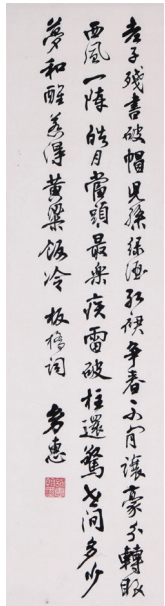 老子殘書破帽兒孫綠酒紅裙爭春不肯讓豪分轉眼
西風一陣皓月當頭最樂疾雷破柱還驚世間多少
夢和醒惹得黃粱飯冷 板橋詞 惠